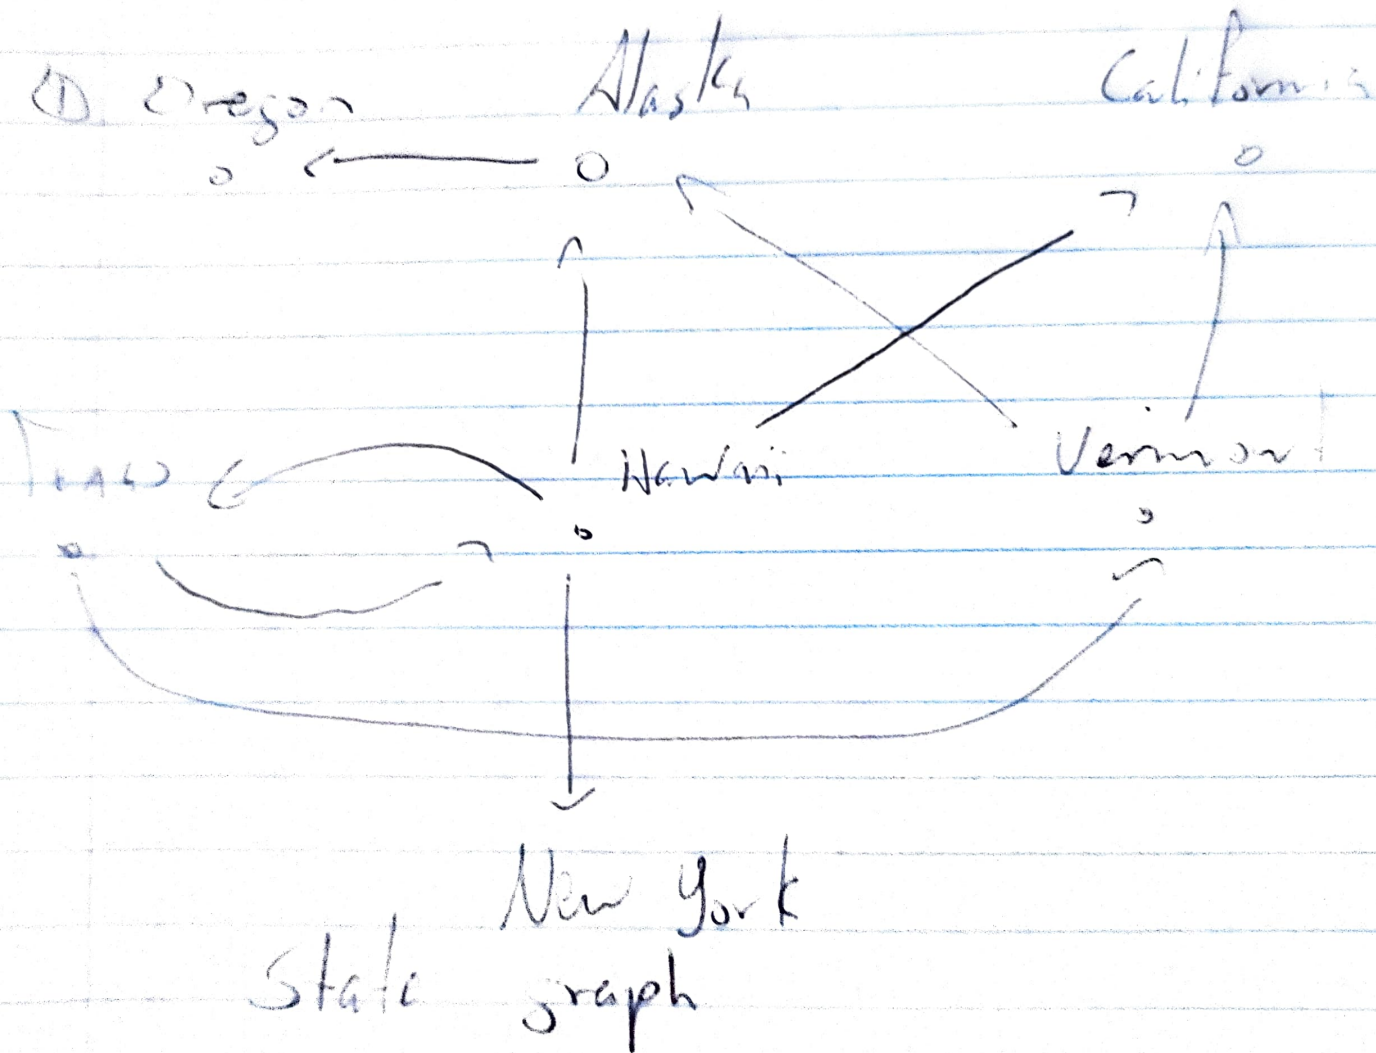 ① Oregon Alaska California
Hawaii Vermont
New York
State graph